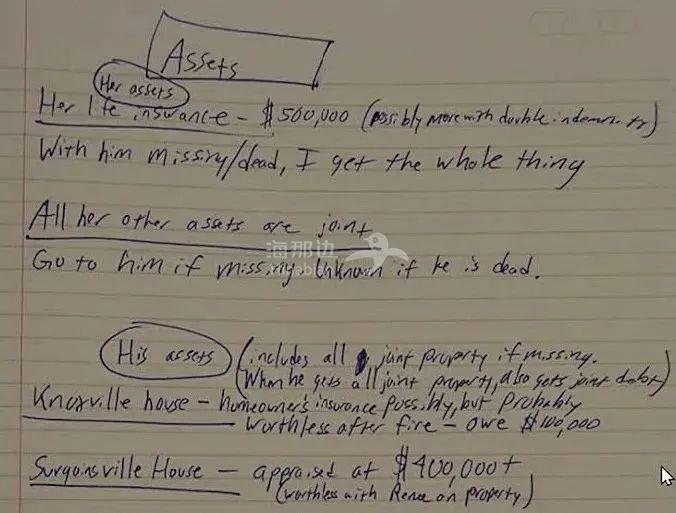 Assets
Her assets
Her life insurance - $500,000 (possibly more with double indemnity)
With him missing/dead, I get the whole thing
All her other assets are joint
海那边
Go to him if missing. Unknown if he is dead.
His assets (includes all joint property if missing.
(When he gets all joint property, also gets joint debts)
Knoxville house - homeowner's insurance possibly, but probably
worthless after fire - owe $100,000
Surgoinsville House - appraised at $400,000+
(worthless with Renee on property)